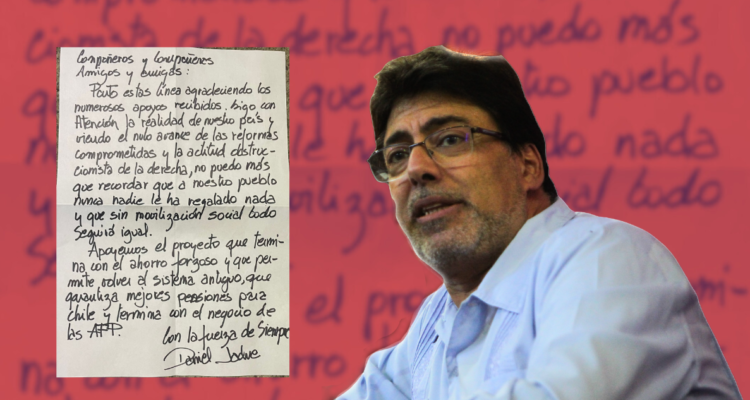 Compañeros y Compañeras
Amigos y Amigas:
estas línea agradeciendo los
numerosos apoyos recibidos. Sigo con
Atención la realidad de nuestro país y
viendo el nulo avance de las reformas
comprometidas y la actitud obstruc-
cionista de la derecha, no puedo más
que recordar que a nuestro pueblo
nunca nadie le ha regalado nada
y que sin movilización social todo
seguirá igual.
Apoyemos el proyecto que termi-
na con el ahorro forzoso y que per-
mite volver al sistema antiguo, que
garantiza mejores pensiones para
Chile y termina con el negocio de
las AFP.
Con la fuerza de Siempre
Daniel Jadue